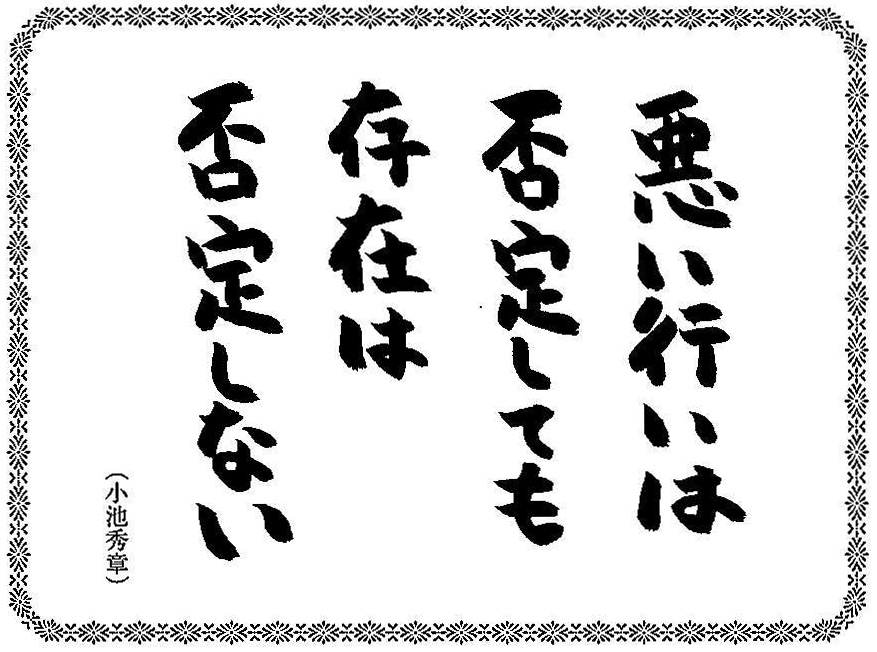 悪い行いは
否定しても
存在は
否定しない
(小池秀章)